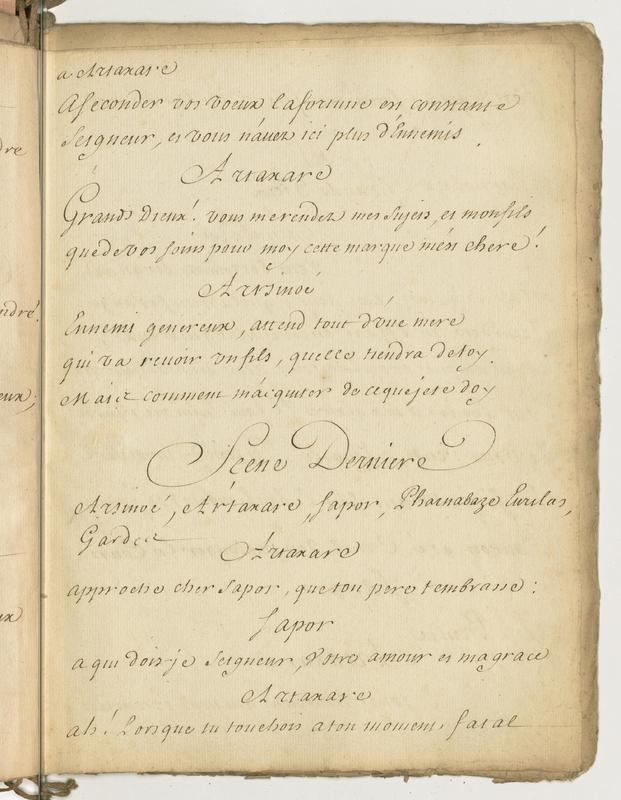 a Artaxare
A seconder vos voeux la fortune est constante
Seigneur, et vous n'avez ici plus d'Ennemis.
Artaxare
Grands Dieux! vous me rendez mes sujets, et mon fils
que de vos soins pour moy cette marque m'est chere!
Arsinoé
Ennemi genereux, attend tout d'une mere
qui va revoir un fils, qu'elle tiendra de toy.
Mais comment m'acquiter de ce que je te doy
Scene Derniere
Arsinoé, Artaxare, Sapor, Pharnabaze Eurilas,
Gardes
Artaxare
approche cher Sapor, que ton pere t'embrasse:
Sapor
a qui dois-je Seigneur, Votre amour et ma grace
Artaxare
ah! Lorsque tu touchois a ton moment fatal
dre
ndré.
eux;
ux